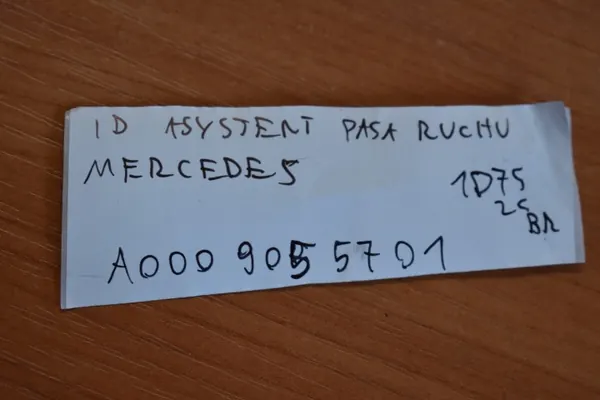 ID ASYSTENT PASA RUCHU
MERCEDES
1D75
25
BR
A000 905 5701